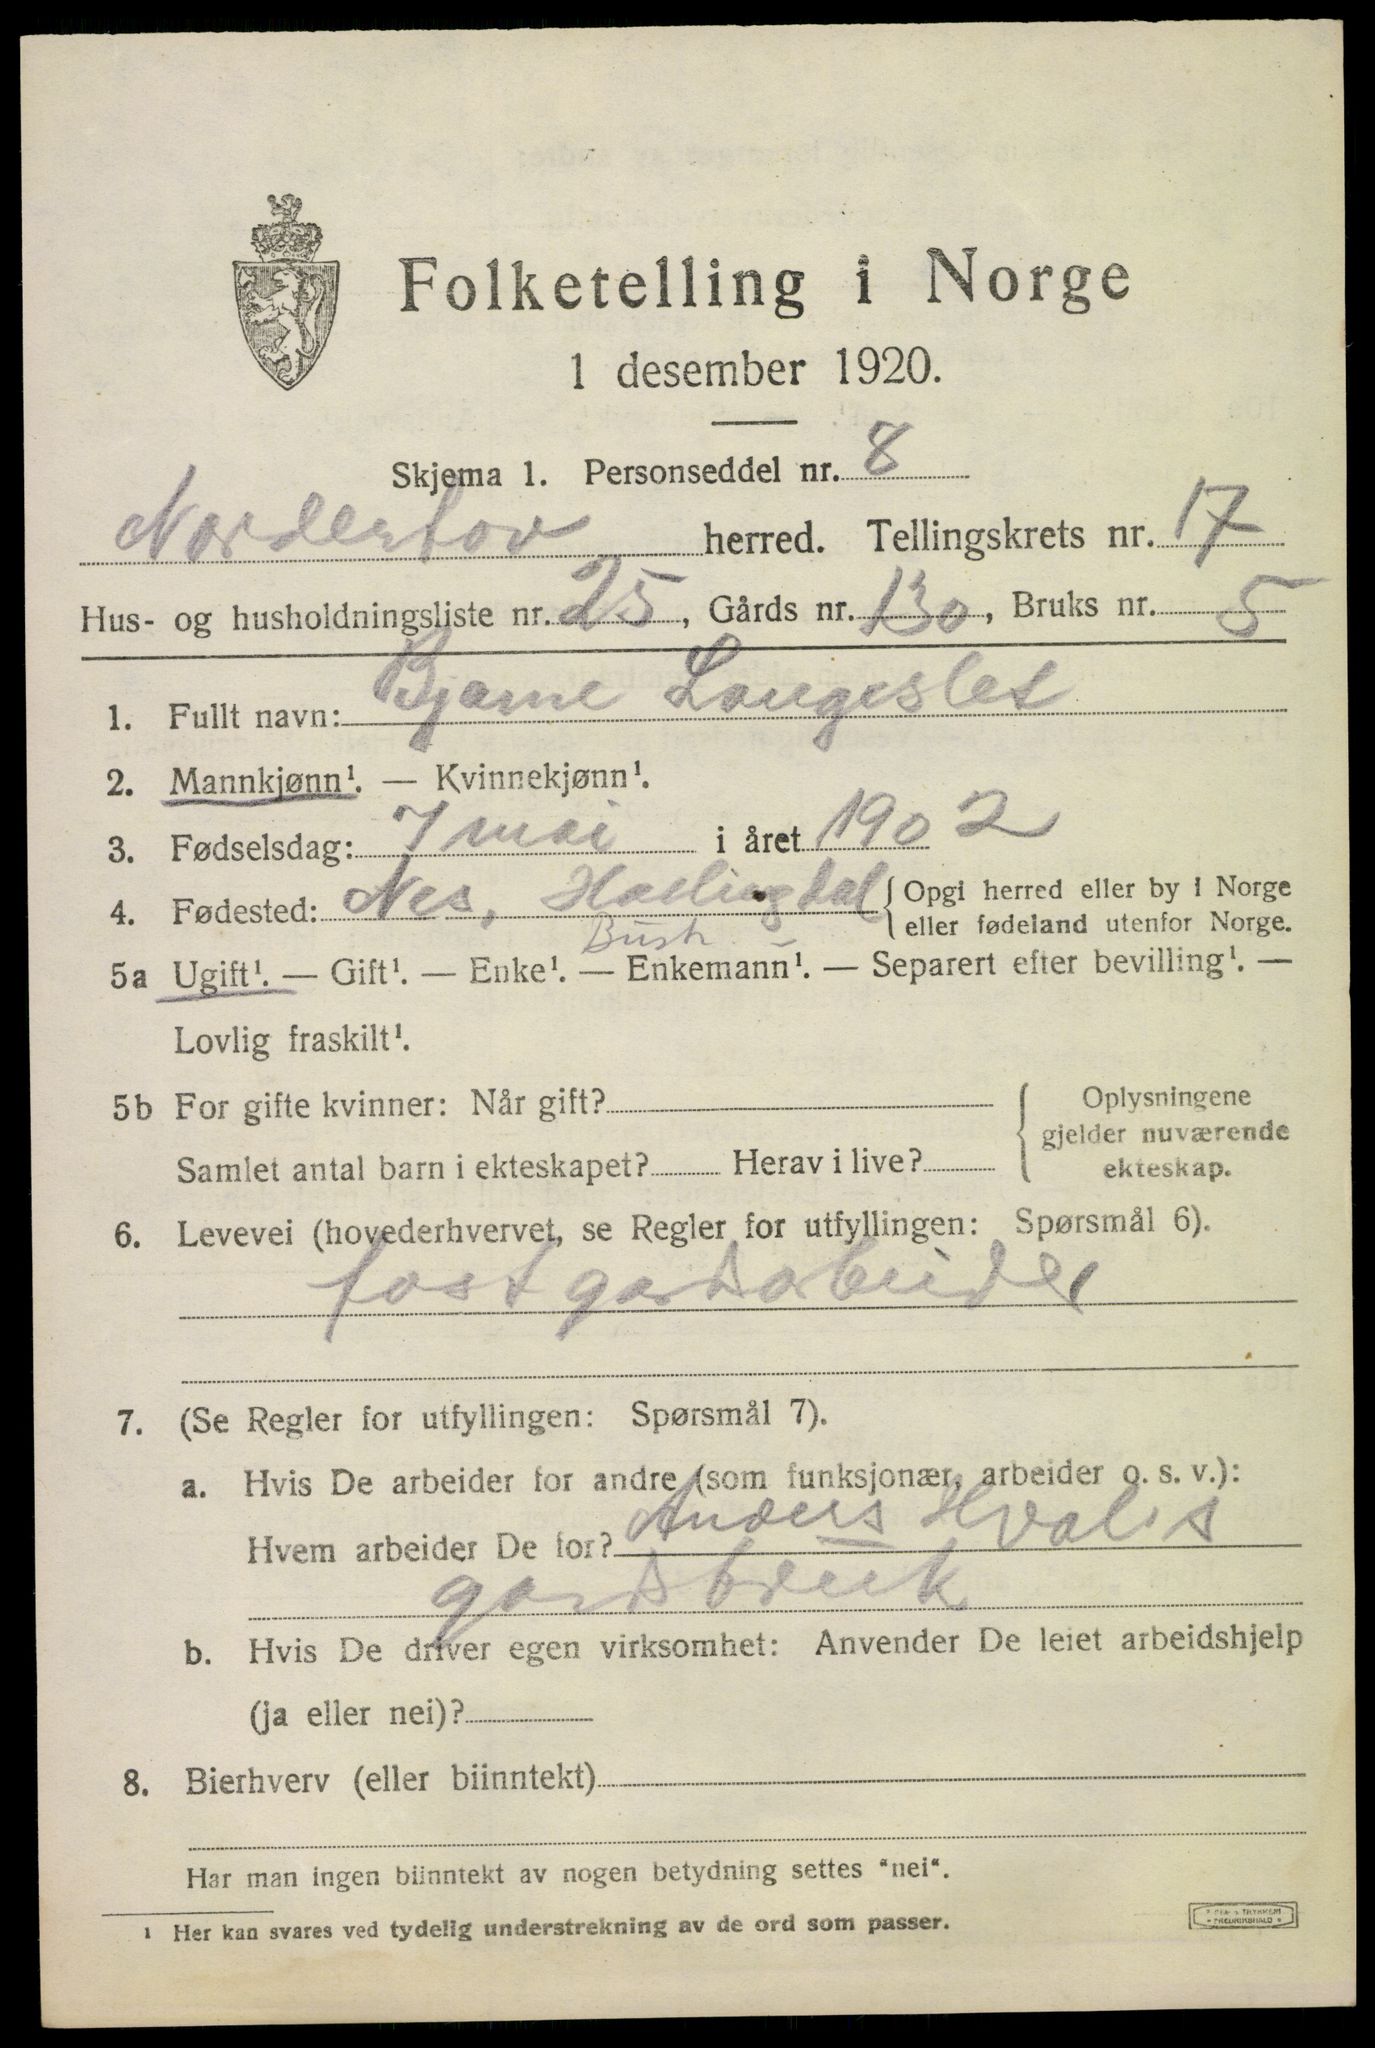 Folketelling i Norge
1 desember 1920.
Skjema 1. Personseddel nr. 8
Norderhov herred. Tellingskrets nr. 17
Hus- og husholdningsliste nr. 25, Gårds nr. 130, Bruks nr. 5
1. Fullt navn: Bjarne Langeslet
2. Mannkjønn¹. — Kvinnekjønn¹.
3. Fødselsdag: 7 mai i året 1902
4. Fødested: Nes, Hallingdal { Opgi herred eller by i Norge
eller fødeland utenfor Norge.
Busk
5a Ugift¹. — Gift¹. — Enke¹. — Enkemann¹. — Separert efter bevilling¹. —
Lovlig fraskilt¹.
5b For gifte kvinner: Når gift?
Samlet antal barn i ekteskapet? Herav i live?
{ Oplysningene
gjelder nuværende
ekteskap.
6. Levevei (hovederhvervet, se Regler for utfyllingen: Spørsmål 6).
fast gardarbeider
7. (Se Regler for utfyllingen: Spørsmål 7).
a. Hvis De arbeider for andre (som funksjonær, arbeider o. s. v.):
Hvem arbeider De for? Anders Hvals
gardsbruk
b. Hvis De driver egen virksomhet: Anvender De leiet arbeidshjelp
(ja eller nei)?
8. Bierhverv (eller biinntekt)
Har man ingen biinntekt av nogen betydning settes "nei".
¹ Her kan svares ved tydelig understrekning av de ord som passer.